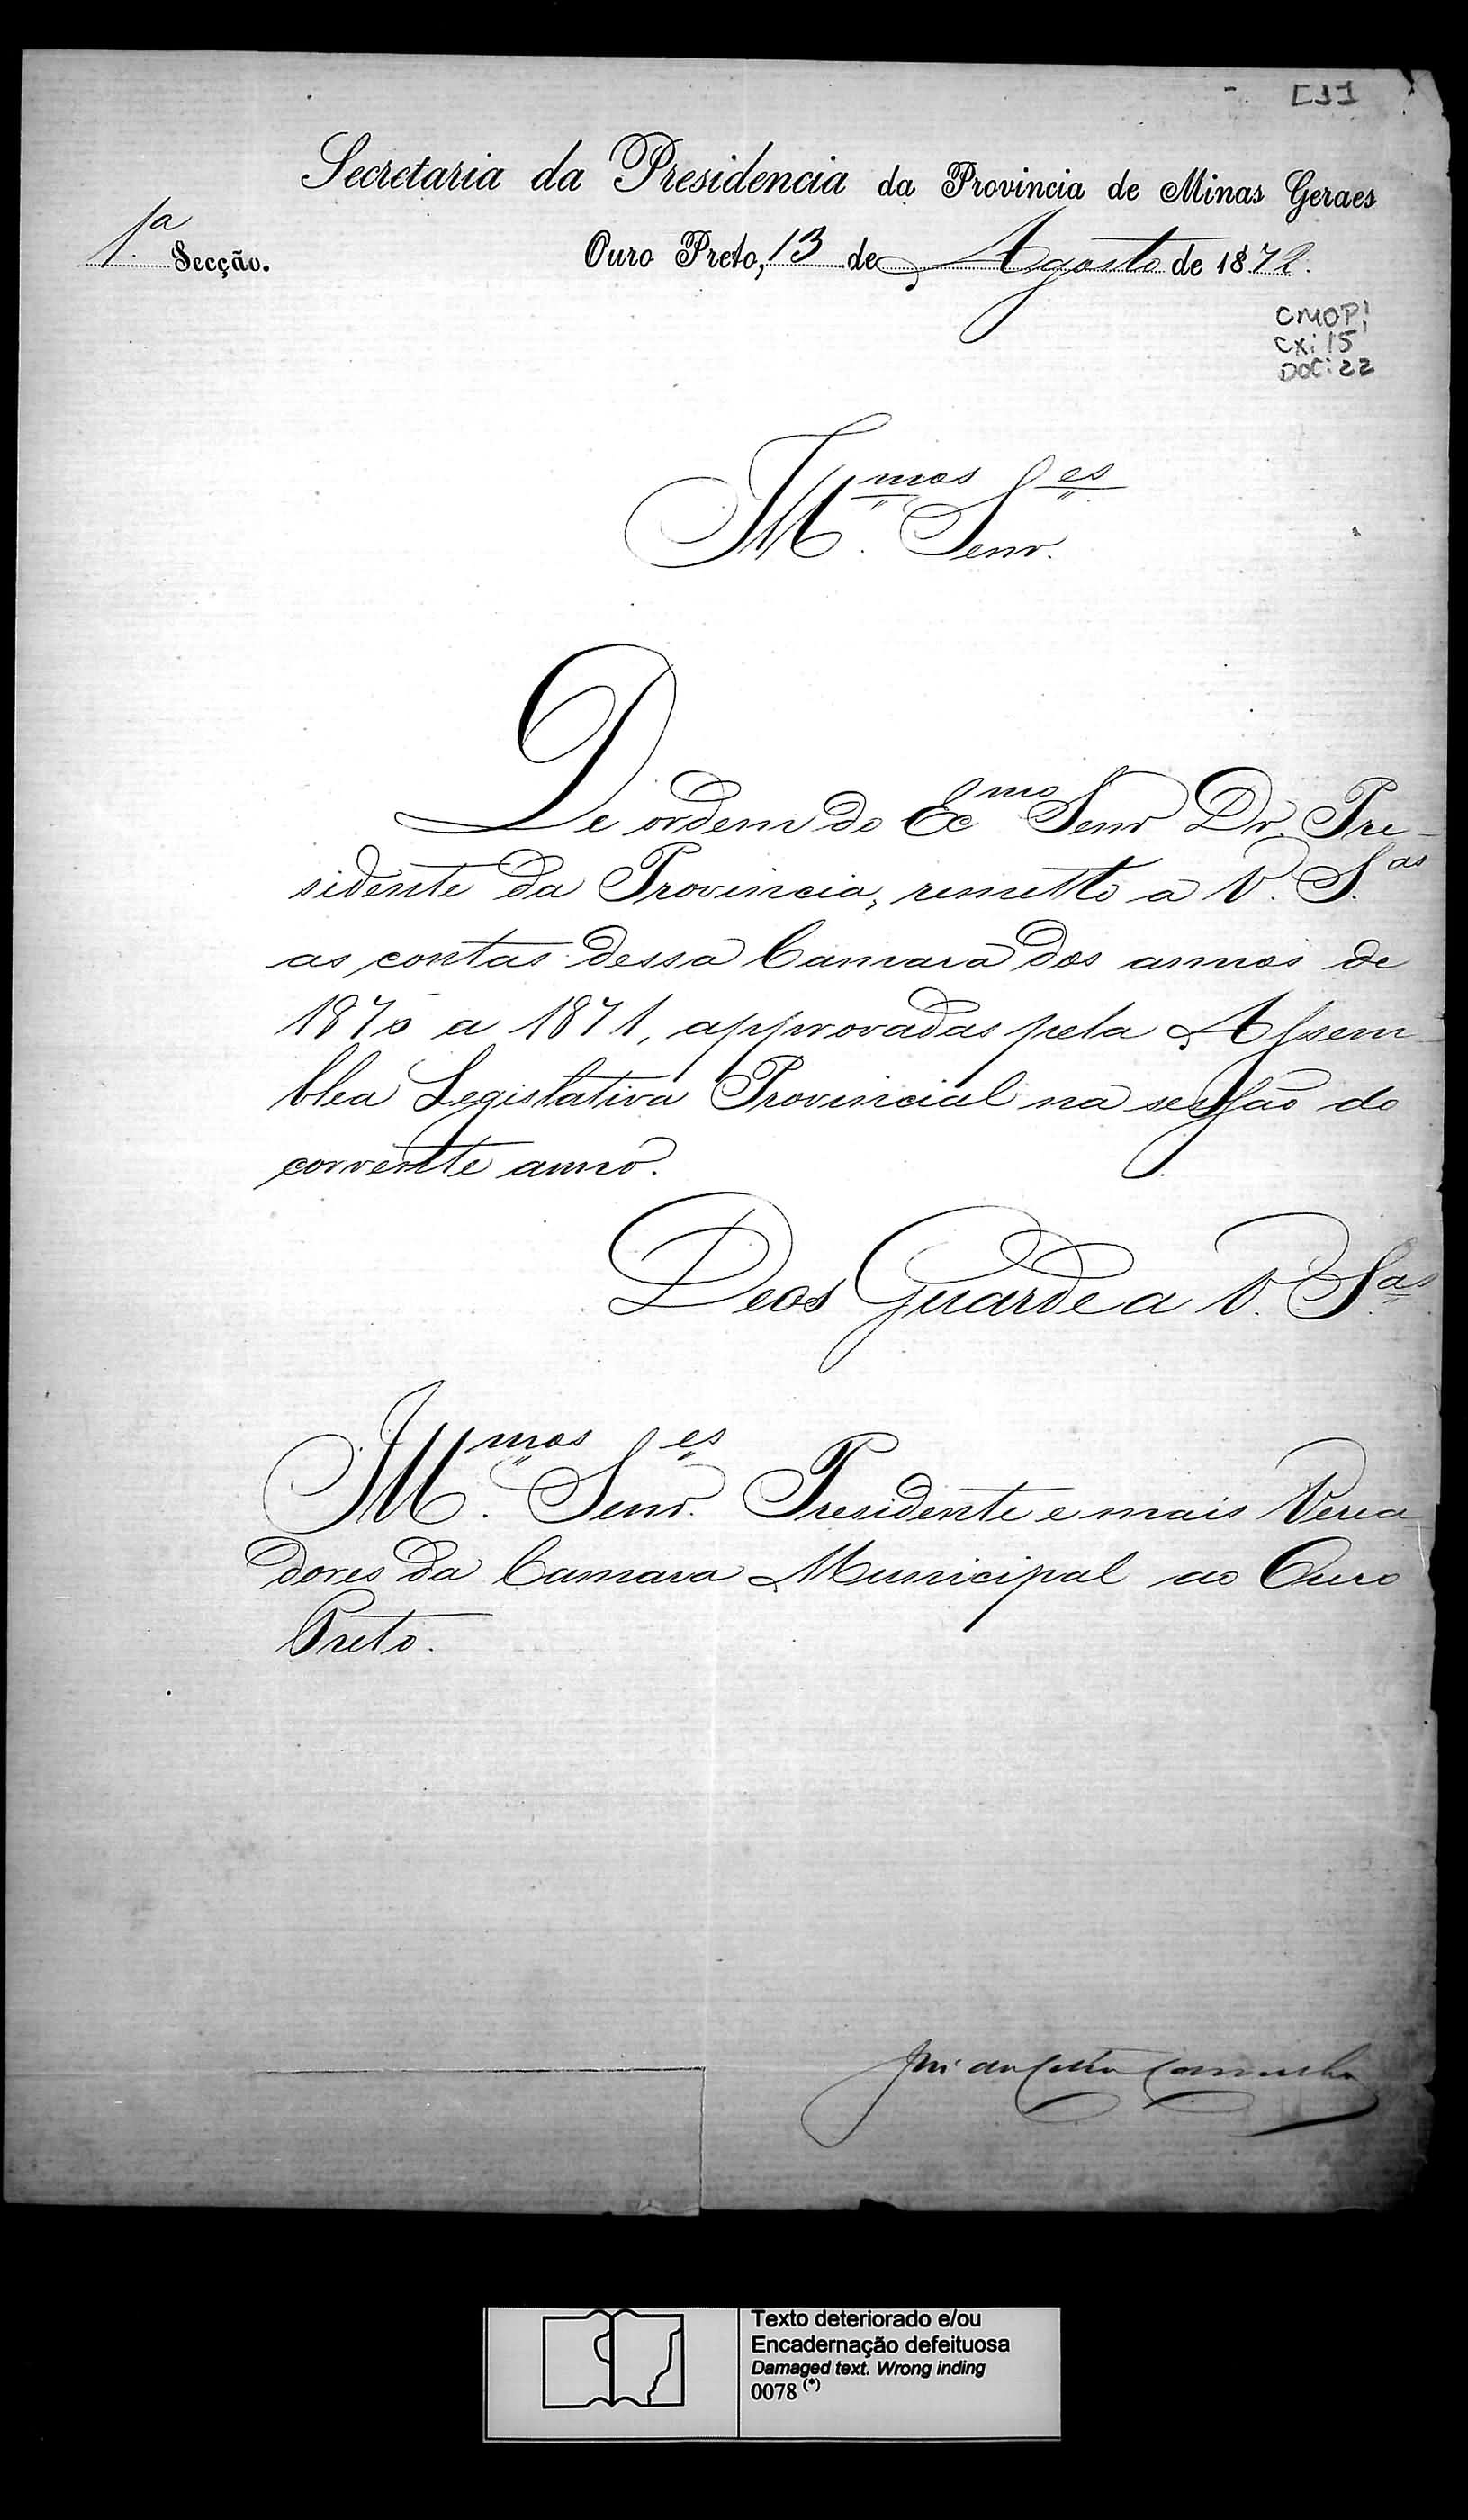 [1]
Secretaria da Presidencia da Provincia de Minas Geraes
1ª Secção. Ouro Preto, 13 de Agosto de 1872.
CMOP!
Cxi 15
DOC: 22
Illmos Senres
De ordem do Ecmo Senr Dr. Pre-
sidente da Provincia, remetto a V. S.as
as contas dessa Camara dos annos de
1870 a 1871, approvadas pela Assem-
blea Legislativa Provincial na sessão do
corrente anno.
Deos Guarde a V. Sas
Illmos Senres Presidente e mais Verea-
dores da Camara Municipal do Ouro
Preto.
Texto deteriorado e/ou
Encadernação defeituosa
Damaged text. Wrong inding
0078 (*)